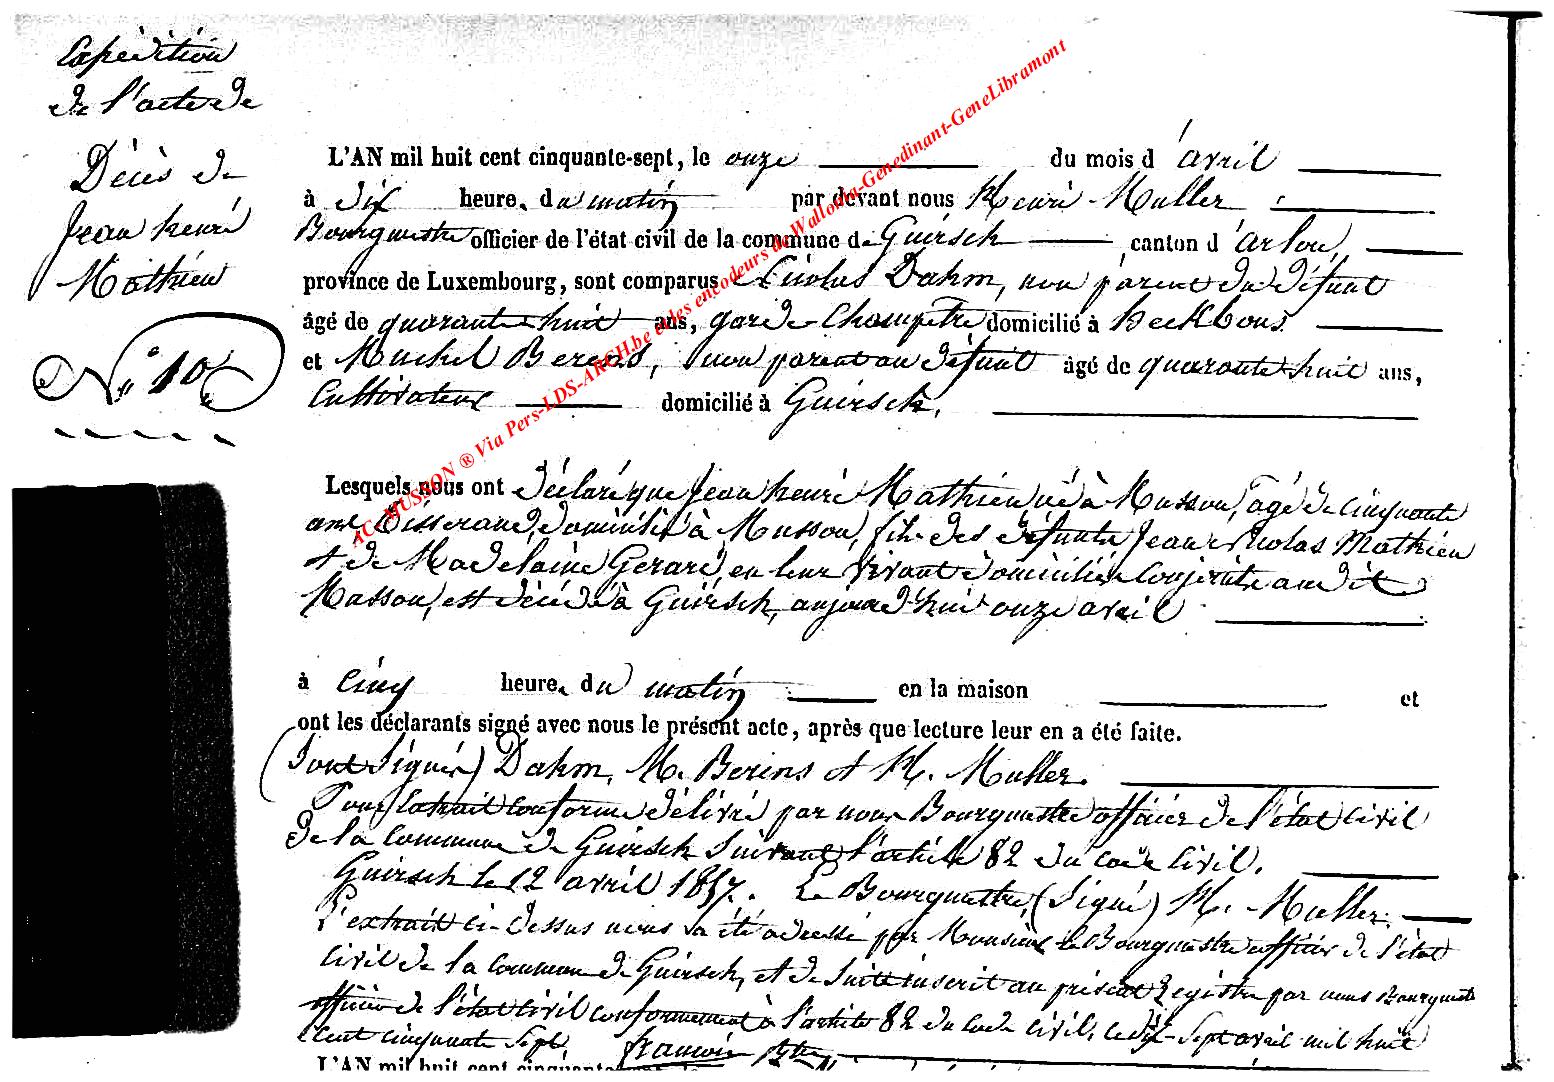 Expédition
de l'acte de
Décès de
Jean henri
Mathieu
N° 10
L'AN mil huit cent cinquante-sept, le onze du mois d'avril
à dix heure, du matin par devant nous H. Henri Muller
Bourgmestre officier de l'état civil de la commune de Guirsch canton d'arlon,
province de Luxembourg, sont comparus Nicolas Dahm, non parent du défunt
âgé de quarante huit ans, garde Champêtre domicilié à heckbous
et Michel Berens, non parent au défunt âgé de quarante huit ans,
Cultivateur domicilié à Guirsch.
Lesquels nous ont déclaré que Jean henri Mathieu, né à Musson, âgé de cinquante
ans tisserand, domicilié à Musson, fils des défunts Jean Nicolas Mathieu
et de Madelaine Gerard, en leur vivant domiciliés Conjoints au dit
Musson, est décédé à Guirsch, aujourd'hui onze avril
à cinq heure, du matin en la maison et
ont les déclarants signé avec nous le présent acte, après que lecture leur en a été faite.
(sont signés) Dahm, M. Berins et H. Muller.
Pour Extrait conforme délivré par nous Bourgmestre officier de l'état civil
de la commune de Guirsch suivant l'article 82 du code civil.
Guirsch le 12 avril 1857. Le Bourgmestre, (signé) H. Muller.
L'extrait ci-dessus nous a été adressé par Monsieur le Bourgmestre officier de l'état
civil de la commune de Guirsch, et de suite inscrit au présent Registre par nous Bourgmestre
officier de l'état civil conformément à l'article 82 du code civil, le dix-sept avril mil huit
cent cinquante sept
L'AN mil huit cent cinquante
AC-MUSSON ® Via Pers-LDS-ARCH.be et les encodeurs de Wallonia-Genedinant-GeneLibramont